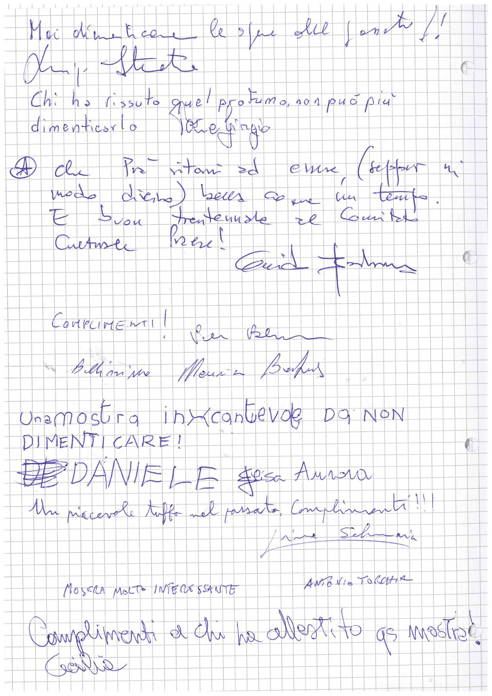 Mai dimenticare le
Chi ha vissuto quel profumo, non può più
dimenticarlo
Ⓐ Che Prà ritorni ad essere, (seppur in
modo diverso) bella come un tempo.
E buon trentennale al Comitato
Culturale Praese!
COMPLIMENTI!
Bellissima
Una mostra incantevole DA NON
DIMENTICARE!
DANIELE Aurora
Un piacevole tuffo nel passato. Complimenti!!!
MOSTRA MOLTO INTERESSANTE
ANTONIO
Complimenti a chi ha allestito qs mostra!
Cecilia